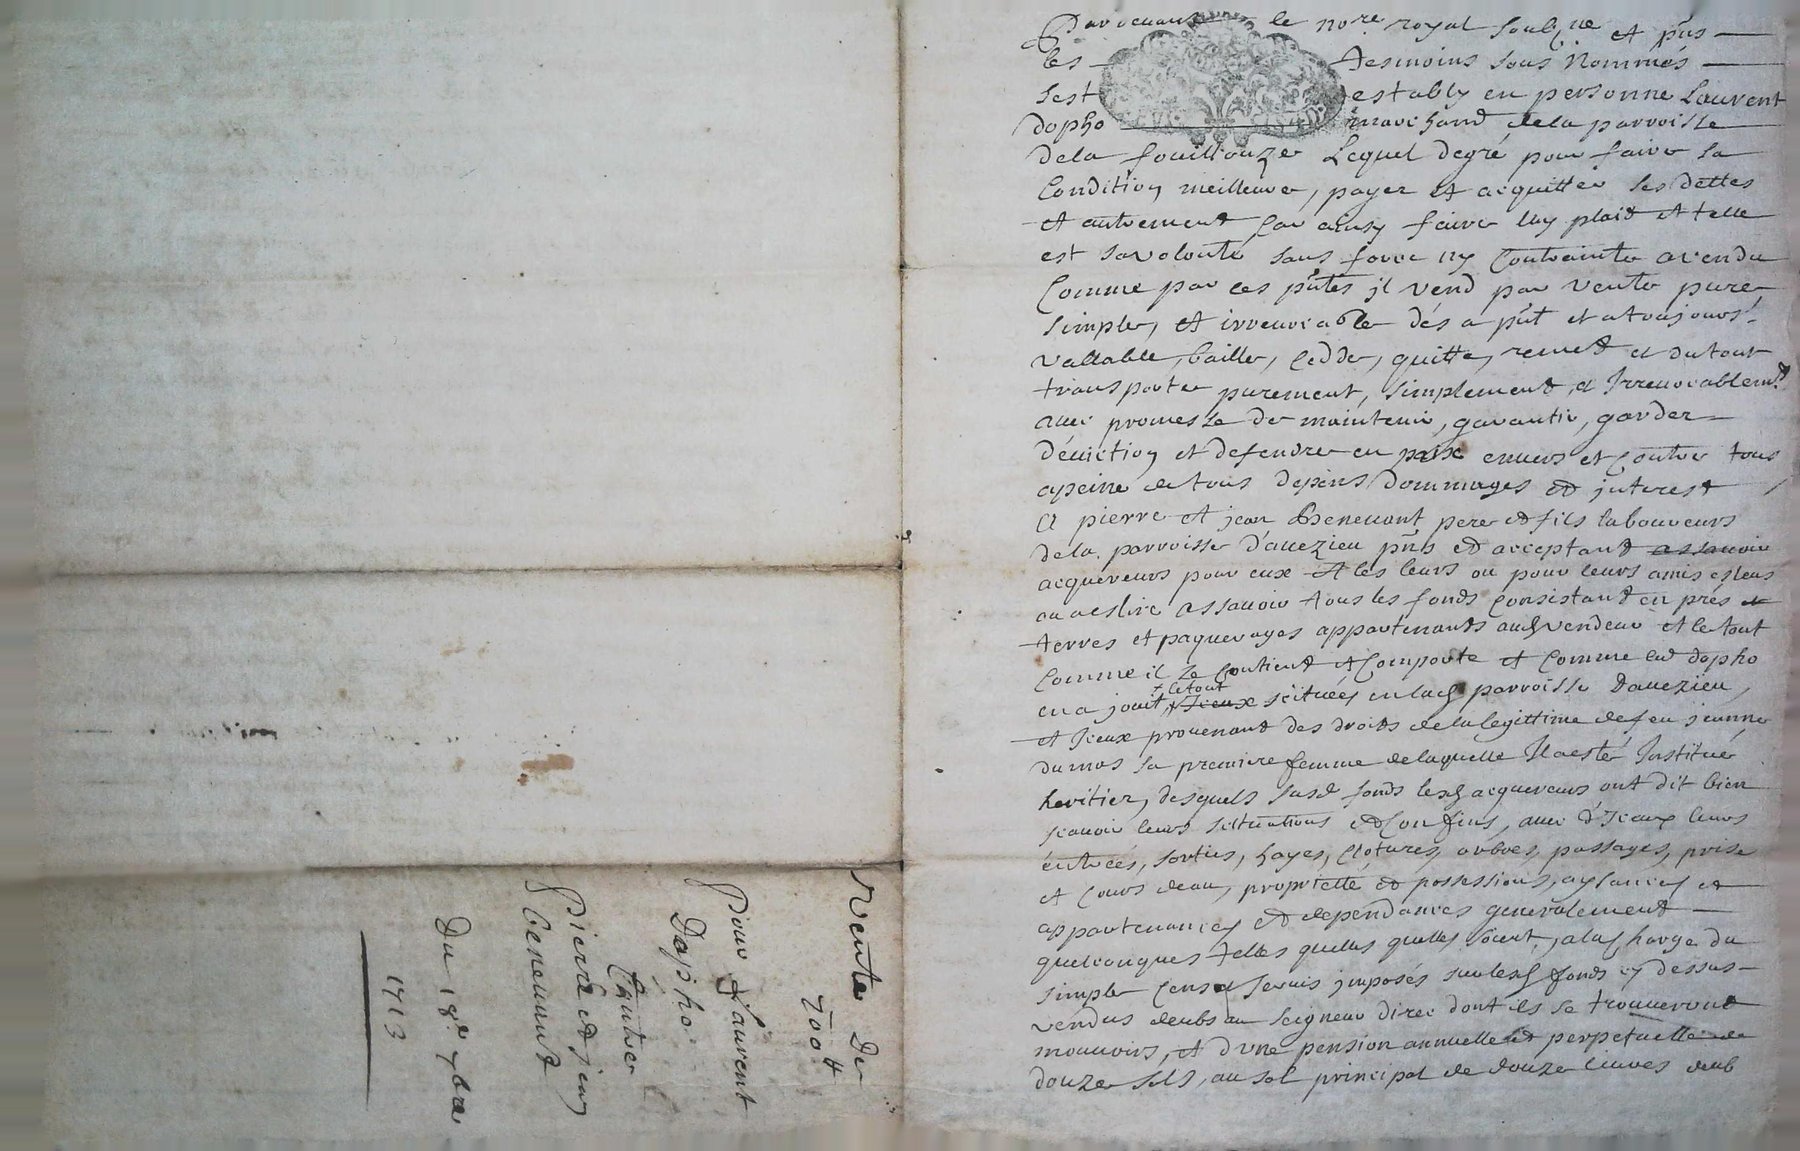 Pardeuant le nore. royal soubzne et pnts
les tesmoins sous nommés
sest estably en personne Laurent
dopho marchand de la parroisse
de la fouillouze Lequel degré pour faire sa
Condition meilleure, payer et acquitter ses dettes
et autrement Car ainsy faire luy plait et telle
est sa volonté sans force ny Contrainte a vendu
Comme par ces pntes jl vend par vente pure
simple, et irreuocable dés a pnt et a toujours
vallable, baille, cedde, quitte, remet et du tout
transporte purement, simplement et Irreuocablemt
auec promesse de maintenir, garantir, garder
d'éuiction et defendre en paix enuers et Contre tous
a peine de tous depens dommages et jnterest
A pierre et jean Beneuant pere et fils laboureurs
de la parroisse d'auezieu pnts et acceptant assauoir
acquereurs pour eux et les leurs ou pour leurs amis esleus
ou a eslire assauoir tous les fonds Consistant en prés et
terres et paquerages appartenants audt vendeur et le tout
Comme il se Contient et Comporte et Comme led dopho
en a jouit, + Jceux scituées en lad parroisse dauezieu,
+ le tout
et Jceux prouenant des droits de la legittime de feu jeanne
dumas sa premiere femme de laquelle Il a esté Institué
heritier, desquels susd fonds lesd acquereurs ont dit bien
scauoir leurs scituations et Confins, auec d'Jceux leurs
entrées, sorties, hayes, Clôtures, arbres, passages, prise
et Cours deau, proprietté et possessions, aysances et
appartenances et dependances generalement
quelconques telles quelles quelles soient, a la Charge du
simple Cens et seruis jmposés sur lesd fonds cy dessus
vendus deubs au seigneur direc dont ils se trouueront
mouuoirs, et d'vne pension annuelle et perpetuelle de
douze sols, au sol principal de douze liures deub
Vente de
700 ₶
Pour Laurent
Dapho
Contre
Pierre et jean
Beneuant
Du 18e 7bre
1713